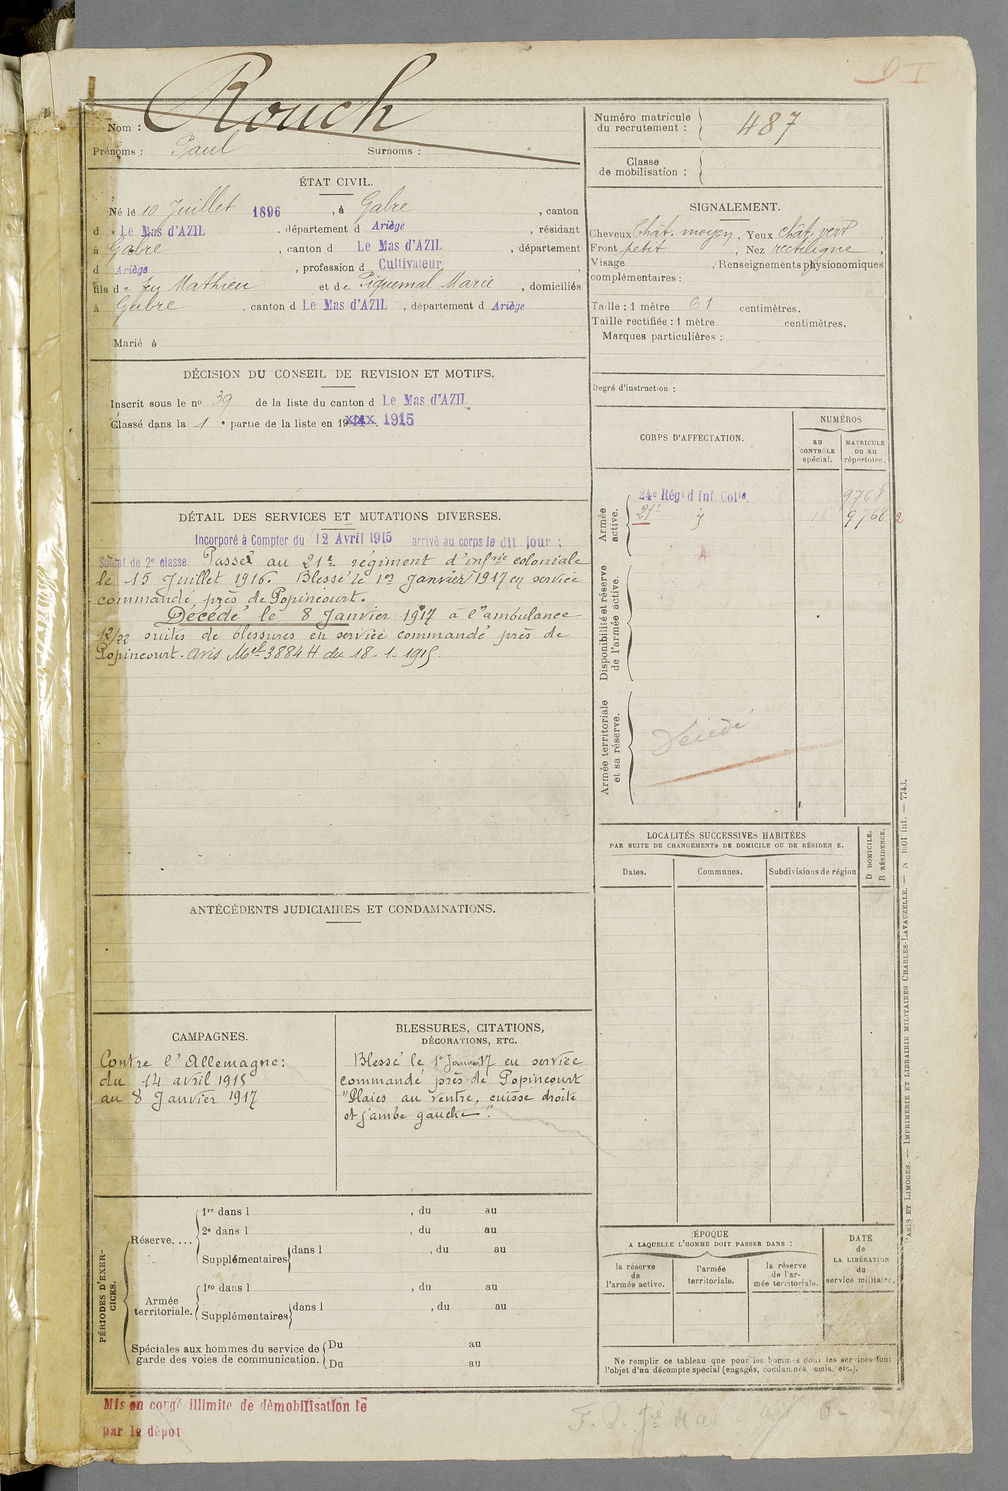 D I
Rouch
Nom :
Prénoms : Paul Surnoms :
ÉTAT CIVIL.
Né le 10 Juillet 1896, à Gabre, canton
d Le Mas d'AZIL, département d Ariège, résidant
à Gabre, canton d Le Mas d'AZIL, département
d Ariège, profession d Cultivateur,
fils de feu Mathieu et de Piquemal Marie, domiciliés
à Gabre, canton d Le Mas d'AZIL, département d Ariège
Marié à
DÉCISION DU CONSEIL DE REVISION ET MOTIFS.
Inscrit sous le no 39 de la liste du canton d Le Mas d'AZIL
Classé dans la 1e partie de la liste en 19 1915
DÉTAIL DES SERVICES ET MUTATIONS DIVERSES.
Incorporé à Compter du 12 Avril 1915 arrivé au corps le dit jour :
Soldat de 2e classe Passé au 21e régiment d'infrie coloniale
le 15 Juillet 1916. Blessé le 1er Janvier 1917 en service
commandé près de Popincourt.
Décédé le 8 Janvier 1917 à l'ambulance
12/22 suites de blessures en service commandé près de
Popincourt. avis Mel 3884 H du 18-1-1915.
ANTÉCÉDENTS JUDICIAIRES ET CONDAMNATIONS.
CAMPAGNES.
Contre l'Allemagne :
du 14 avril 1915
au 8 Janvier 1917
BLESSURES, CITATIONS,
DÉCORATIONS, ETC.
Blessé le 1er Janvier 17 en service
commandé près de Popincourt
"Plaies au ventre, cuisse droite
et jambe gauche".
PÉRIODES D'EXER-
CICES.
Réserve. ...
1re dans l , du au
2e dans l , du au
Supplémentaires dans l , du au
Armée
territoriale.
1re dans l , du au
Supplémentaires dans l , du au
Spéciales aux hommes du service de
garde des voies de communication.
Du au
Du au
Mis en congé illimité de démobilisation le
par le dépot
Numéro matricule
du recrutement : 487
Classe
de mobilisation :
SIGNALEMENT.
Cheveux chât. moyen, Yeux chât. vert,
Front petit, Nez rectiligne,
Visage , Renseignements physionomiques
complémentaires :
Taille : 1 mètre 61 centimètres.
Taille rectifiée : 1 mètre centimètres.
Marques particulières :
Degré d'instruction :
CORPS D'AFFECTATION.
NUMÉROS
AU
CONTRÔLE
spécial.
MATRICULE
OU AU
répertoire.
Armée
active.
24e Régt d Inf. Colle. 9768
21e 9768 2
Disponibilité et réserve
de l'armée active.
Armée territoriale
et sa réserve.
Décédé
LOCALITÉS SUCCESSIVES HABITÉES
PAR SUITE DE CHANGEMENTS DE DOMICILE OU DE RÉSIDEN E.
Dates.
Communes.
Subdivisions de région
D DOMICILE.
R RÉSIDENCE.
ÉPOQUE
A LAQUELLE L'HOMME DOIT PASSER DANS :
la réserve
de
l'armée active.
l'armée
territoriale.
la réserve
de l'ar-
mée territoriale.
DATE
de
LA LIBÉRATION
du
service militaire.
Ne remplir ce tableau que pour les hommes dont les services font
l'objet d'un décompte spécial (engagés, condamnés, omis, etc.).
PARIS ET LIMOGES. — IMPRIMERIE ET LIBRAIRIE MILITAIRES CHARLES-LAVAUZELLE. — N 1001 int. — 7743.